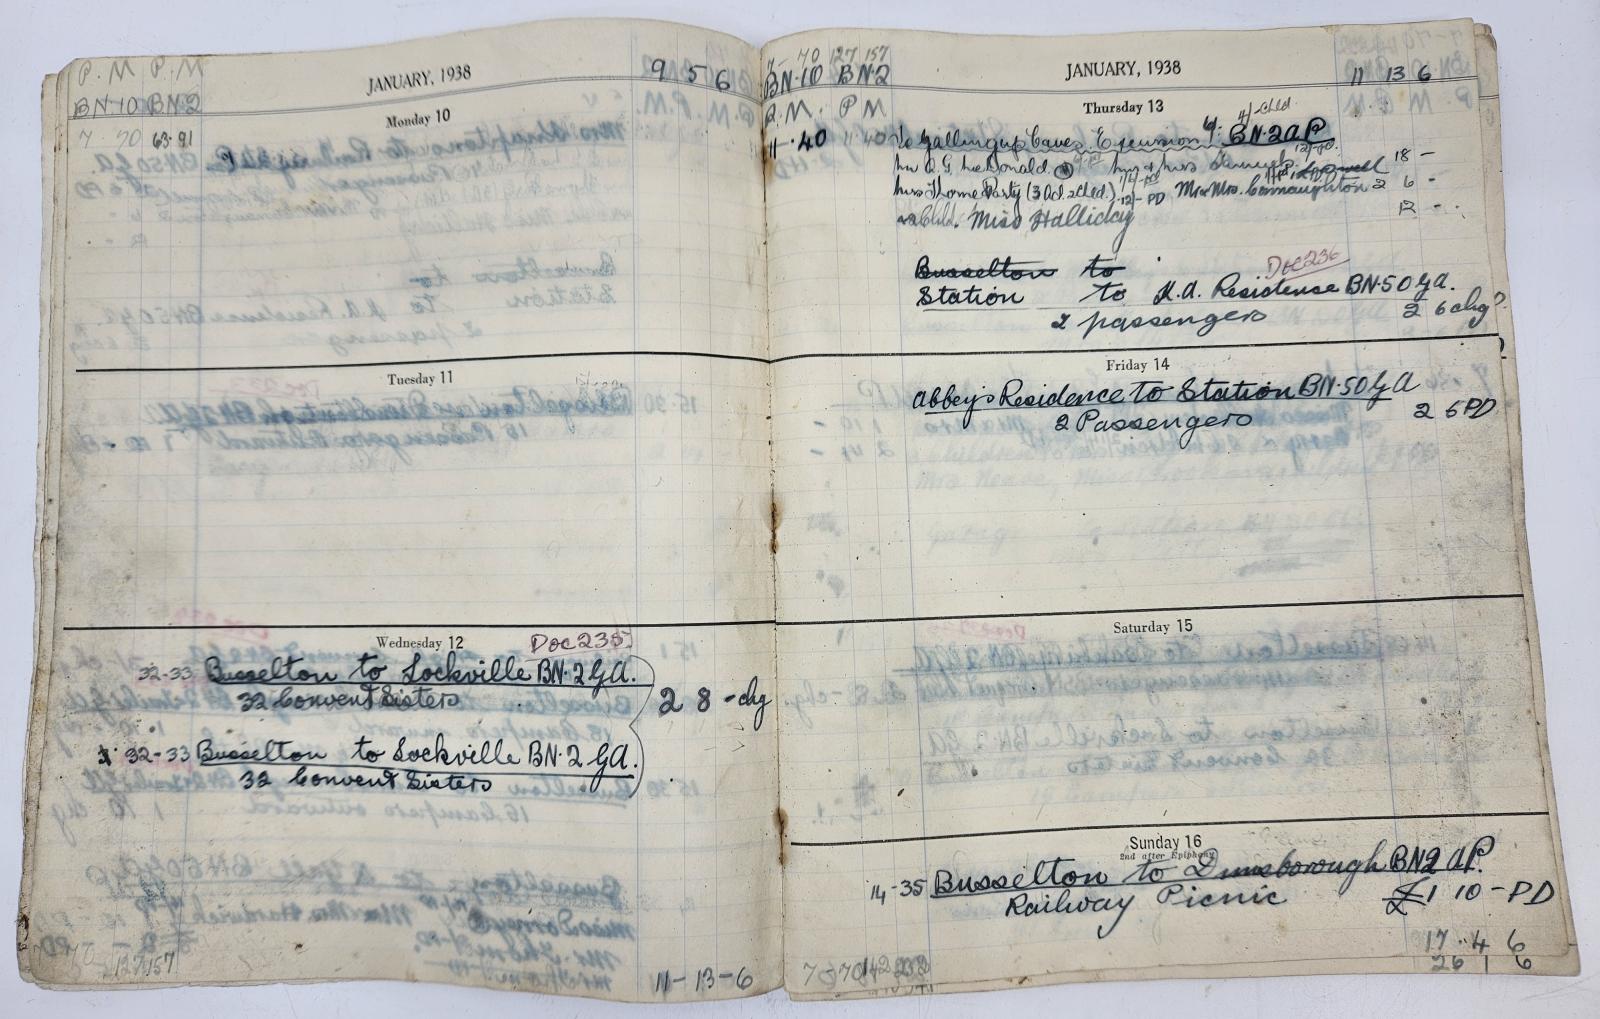 P.M P.M
BN.10 BN.2
7 70 63.91
JANUARY, 1938
9 5 6
Monday 10
Tuesday 11
Wednesday 12
Doc 235
32-33 Busselton to Lockville BN.2 GA.
32 Convent Sisters
2 8 - chg
32-33 Busselton to Lockville BN.2 GA.
32 Convent Sisters
127 157
11-13-6
7- 70 127 157
BN.10 BN.2
P.M. P M
JANUARY, 1938
11 13 6
Thursday 13
11.40 11 40 To Yallingup Caves Excursion BN.2 AP
Mr A.G. McDonald. Mr & Mrs
18 -
Mrs Thorne Party (3 Ad. 2 Chld.) 12/- PD Mr & Mrs. Connaughton 2 6 -
Miss Halliday
12 - .
Busselton to
Doc 236
Station to K.A. Residence BN.50 GA.
2 passengers 2 6 chg?
Friday 14
Abbeys Residence to Station BN.50 GA
2 Passengers 2 6 PD
Saturday 15
Sunday 16
2nd after Epiphany
14-35 Busselton to Dunsborough BN2 AP.
Railway Picnic £1 10 - PD
17 . 4 6
26 1 6